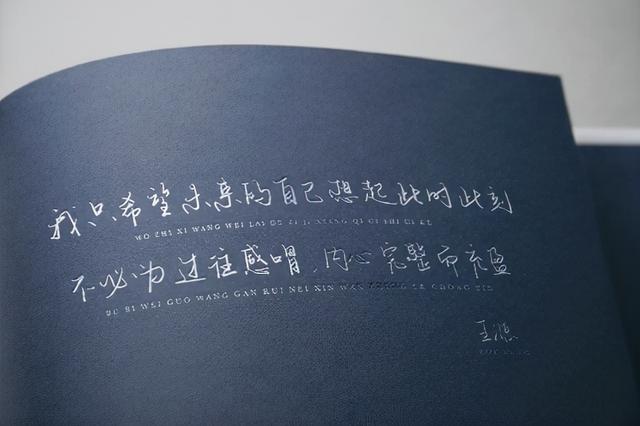 我只希望未来的自己想起此时此刻
WO ZHI XI WANG WEI LAI DE ZI JI XIANG QI CI SHI CI KE
不必为过往感喟,内心完整而充盈
BU BI WEI GUO WANG GAN KUI NEI XIN WAN ZHENG ER CHONG
王源